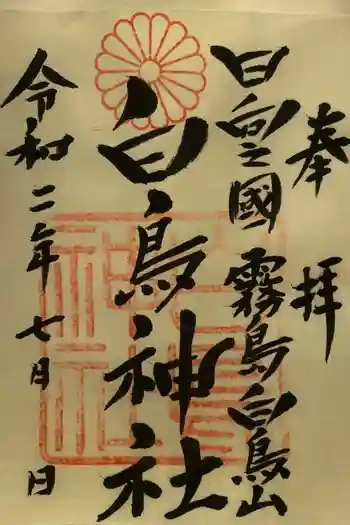 奉拝
日向之國霧島白鳥山
白鳥神社
令和二年七月 日